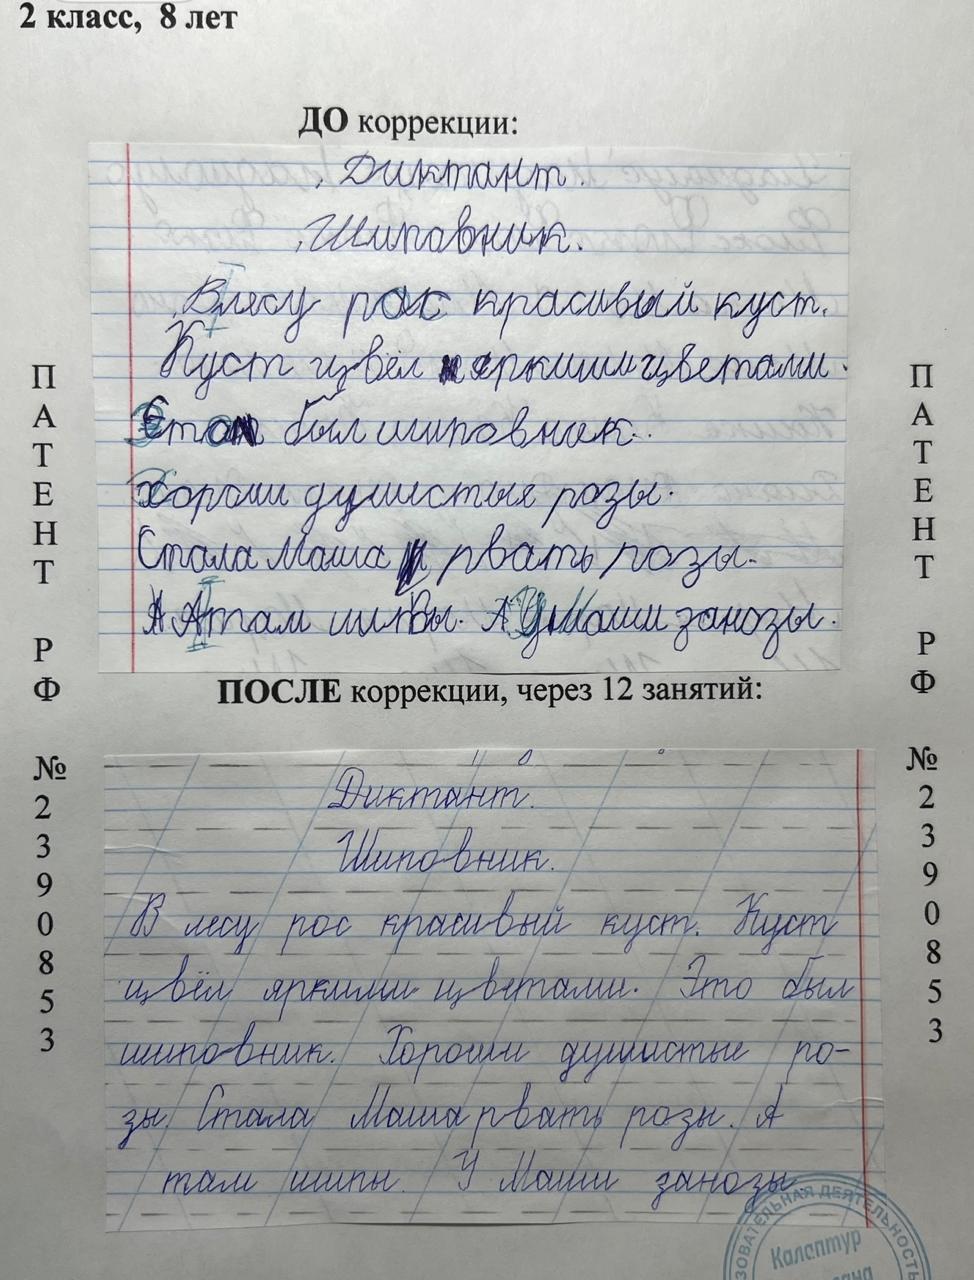 2 класс, 8 лет
ДО коррекции:
Диктант.
Шиповник.
Влесу рос красивый куст.
Куст цвёл яркимицветами.
Этот был шиповник.
Хороши душистые розы.
Стала Маша рвать розы.
А Атам шипы. А УМаши занозы.
ПОСЛЕ коррекции, через 12 занятий:
Диктант.
Шиповник.
В лесу рос красивый куст. Куст
цвёл яркими цветами. Это был
шиповник. Хороши душистые ро-
зы. Стала Маша рвать розы. А
там шипы. У Маши занозы
ПАТЕНТ РФ №2390853
ПАТЕНТ РФ №2390853
ЗОВАТЕЛЬНАЯ ДЕЯТЕЛЬНОСТЬ
Калаптур